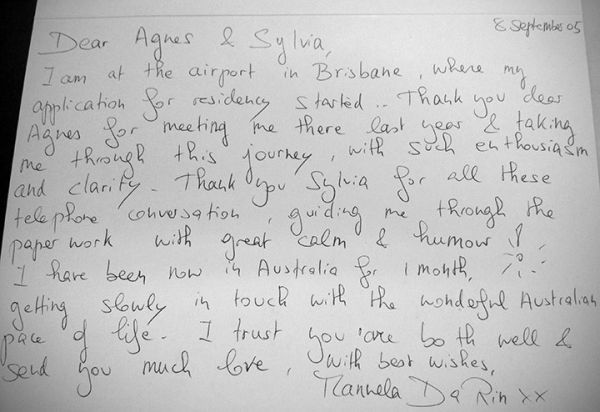 8 September 05
Dear Agnes & Sylvia,
I am at the airport in Brisbane, where my
application for residency started.. Thank you dear
Agnes for meeting me there last year & taking
me through this journey, with such enthousiasm
and clarity. Thank you Sylvia for all these
telephone conversation, guiding me through the
paper work with great calm & humour!
I have been now in Australia for 1 month,
getting slowly in touch with the wonderful Australian
pace of life. I trust you are both well &
send you much love, with best wishes,
Mannela Da Rin xx